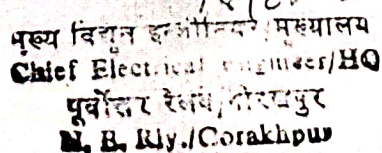 मुख्य विद्युत इन्जीनियर/मुख्यालय
Chief Electrical Engineer/HQ
पूर्वोत्तर रेलवे/गोरखपुर
N. E. Rly./Gorakhpur